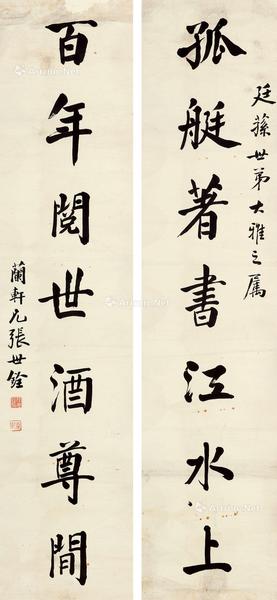 廷蓀世弟大雅之屬
孤艇著書江水上
百年閱世酒尊閒
蘭軒兄張世銓